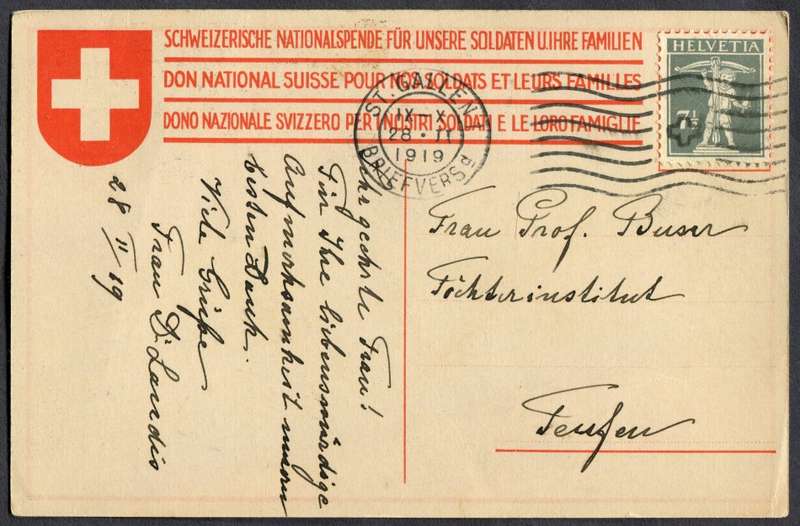 SCHWEIZERISCHE NATIONALSPENDE FÜR UNSERE SOLDATEN U. IHRE FAMILIEN
DON NATIONAL SUISSE POUR NOS SOLDATS ET LEURS FAMILLES
DONO NAZIONALE SVIZZERO PER I NOSTRI SOLDATI E LE LORO FAMIGLIE
HELVETIA
ST. GALLEN
IX-X
28·II
1919
BRIEFVERS
Frau Prof. Buser
Töchterinstitut
Teufen
Sehr geehrte Frau!
Für Ihre liebenswürdige
Aufmerksamkeit unsern
besten Dank.
Viele Grüße
Frau Dr. Landis
28 II 19